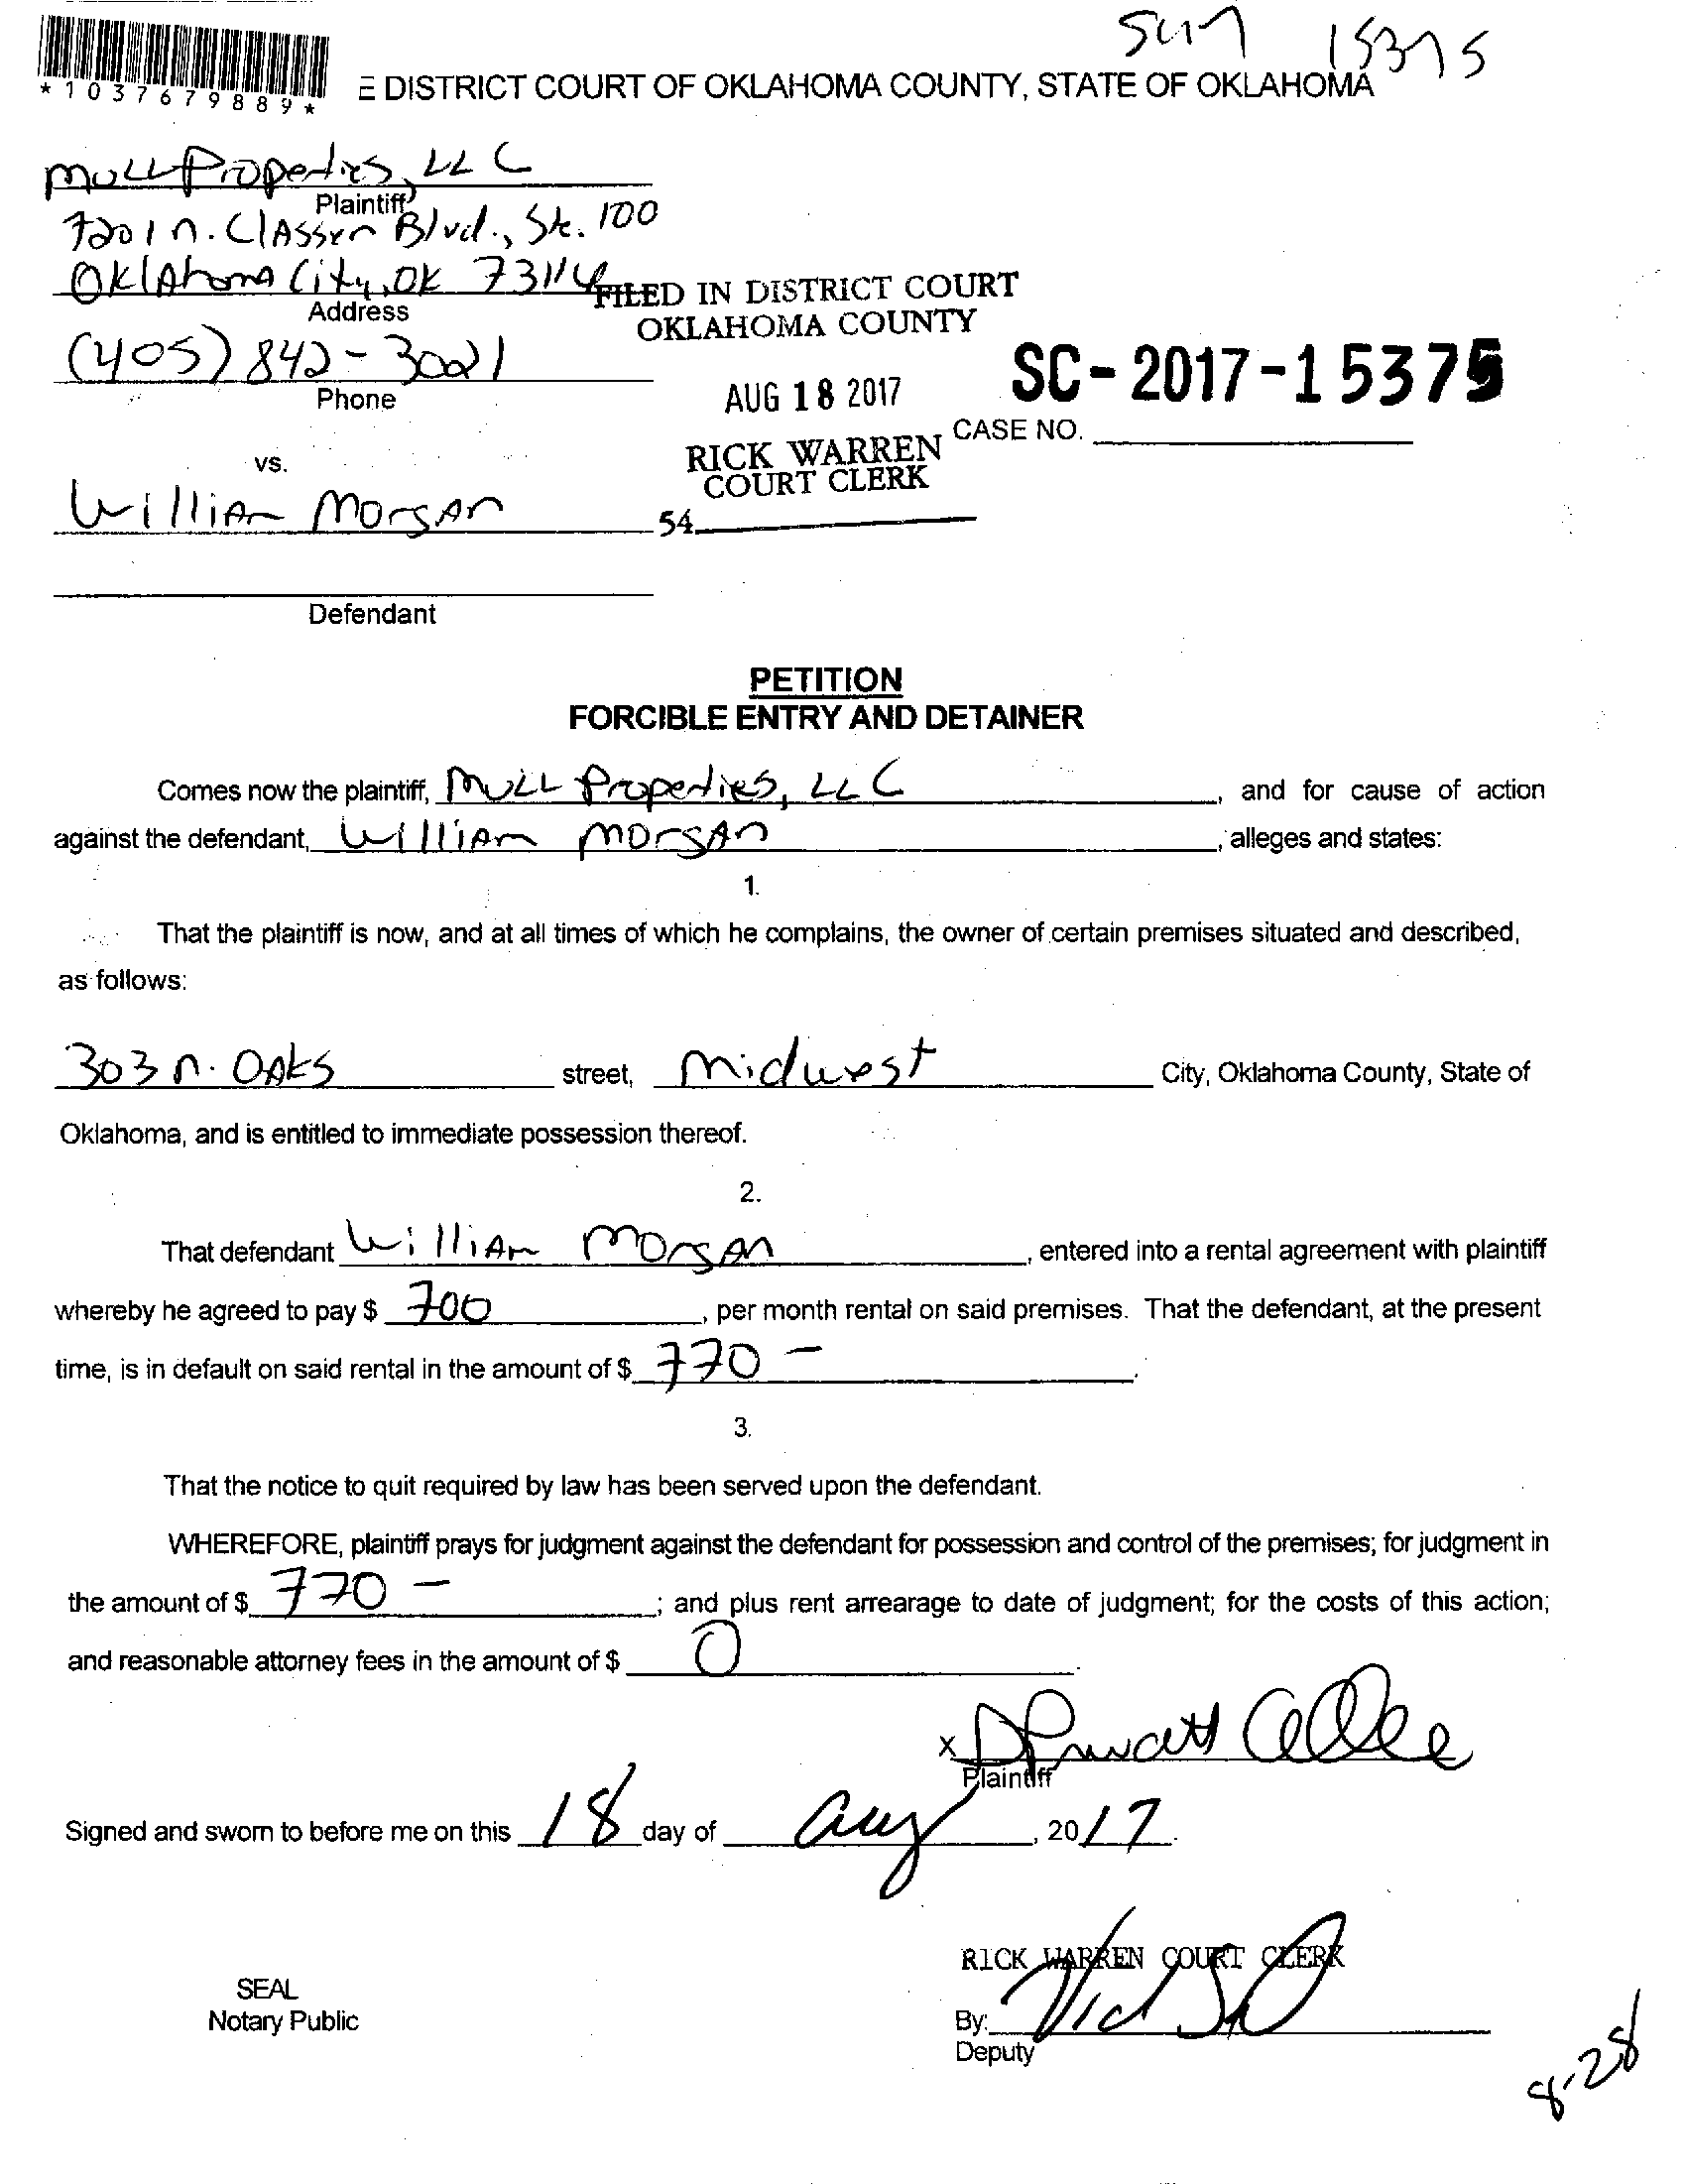 15375
*1037679889*
E DISTRICT COURT OF OKLAHOMA COUNTY, STATE OF OKLAHOMA
Mull Properties, LLC
Plaintiff
7201 N. Classen Blvd., Ste. 100
Oklahoma City, OK 73116
Address
FILED IN DISTRICT COURT
OKLAHOMA COUNTY
(405) 842-3021
Phone
AUG 18 2017
SC-2017-15375
CASE NO.
RICK WARREN
COURT CLERK
vs.
William Morgan
54
Defendant
PETITION
FORCIBLE ENTRY AND DETAINER
Comes now the plaintiff, Mull Properties, LLC, and for cause of action
against the defendant, William Morgan, alleges and states:
1.
That the plaintiff is now, and at all times of which he complains, the owner of certain premises situated and described,
as follows:
303 N. Oaks street, Midwest City, Oklahoma County, State of
Oklahoma, and is entitled to immediate possession thereof.
2.
That defendant William Morgan, entered into a rental agreement with plaintiff
whereby he agreed to pay $ 700, per month rental on said premises. That the defendant, at the present
time, is in default on said rental in the amount of $ 770 -.
3.
That the notice to quit required by law has been served upon the defendant.
WHEREFORE, plaintiff prays for judgment against the defendant for possession and control of the premises; for judgment in
the amount of $ 770 -; and plus rent arrearage to date of judgment; for the costs of this action;
and reasonable attorney fees in the amount of $ 0.
x
Plaintiff
Signed and sworn to before me on this 18 day of Aug, 2017.
RICK WARREN COURT CLERK
SEAL
Notary Public
By:
Deputy
8-28